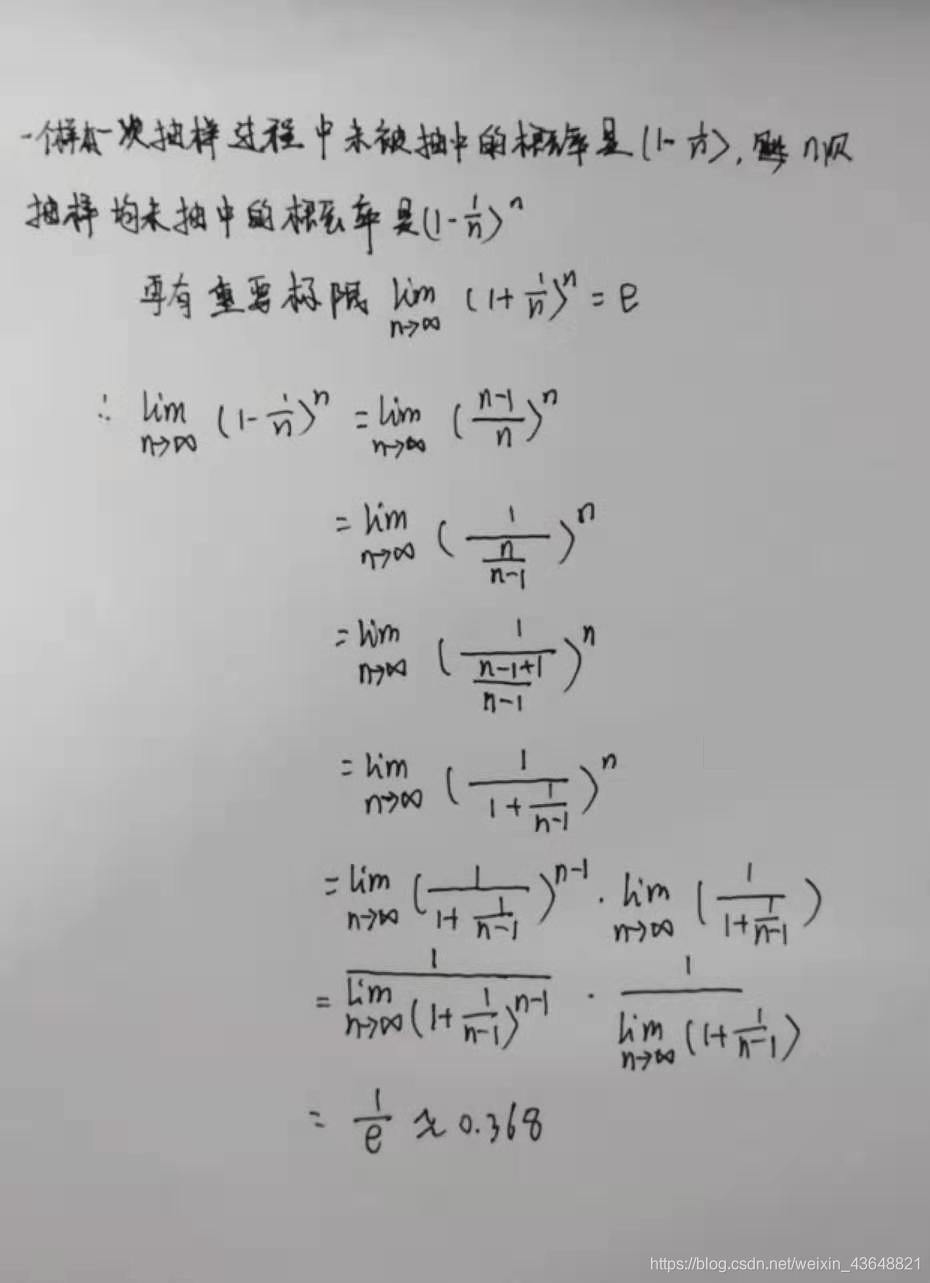 一个样本一次抽样过程中未被抽中的概率是(1-1/n),  n次
抽样均未抽中的概率是(1-1/n)^n
再有重要极限 lim_{n→∞} (1+1/n)^n = e
∴ lim_{n→∞} (1-1/n)^n = lim_{n→∞} ((n-1)/n)^n
= lim_{n→∞} (1/(n/(n-1)))^n
= lim_{n→∞} (1/((n-1+1)/(n-1)))^n
= lim_{n→∞} (1/(1+1/(n-1)))^n
= lim_{n→∞} (1/(1+1/(n-1)))^{n-1} · lim_{n→∞} (1/(1+1/(n-1)))
= 1/(lim_{n→∞} (1+1/(n-1))^{n-1}) · 1/(lim_{n→∞} (1+1/(n-1)))
= 1/e ≈ 0.368
https://blog.csdn.net/weixin_43648821